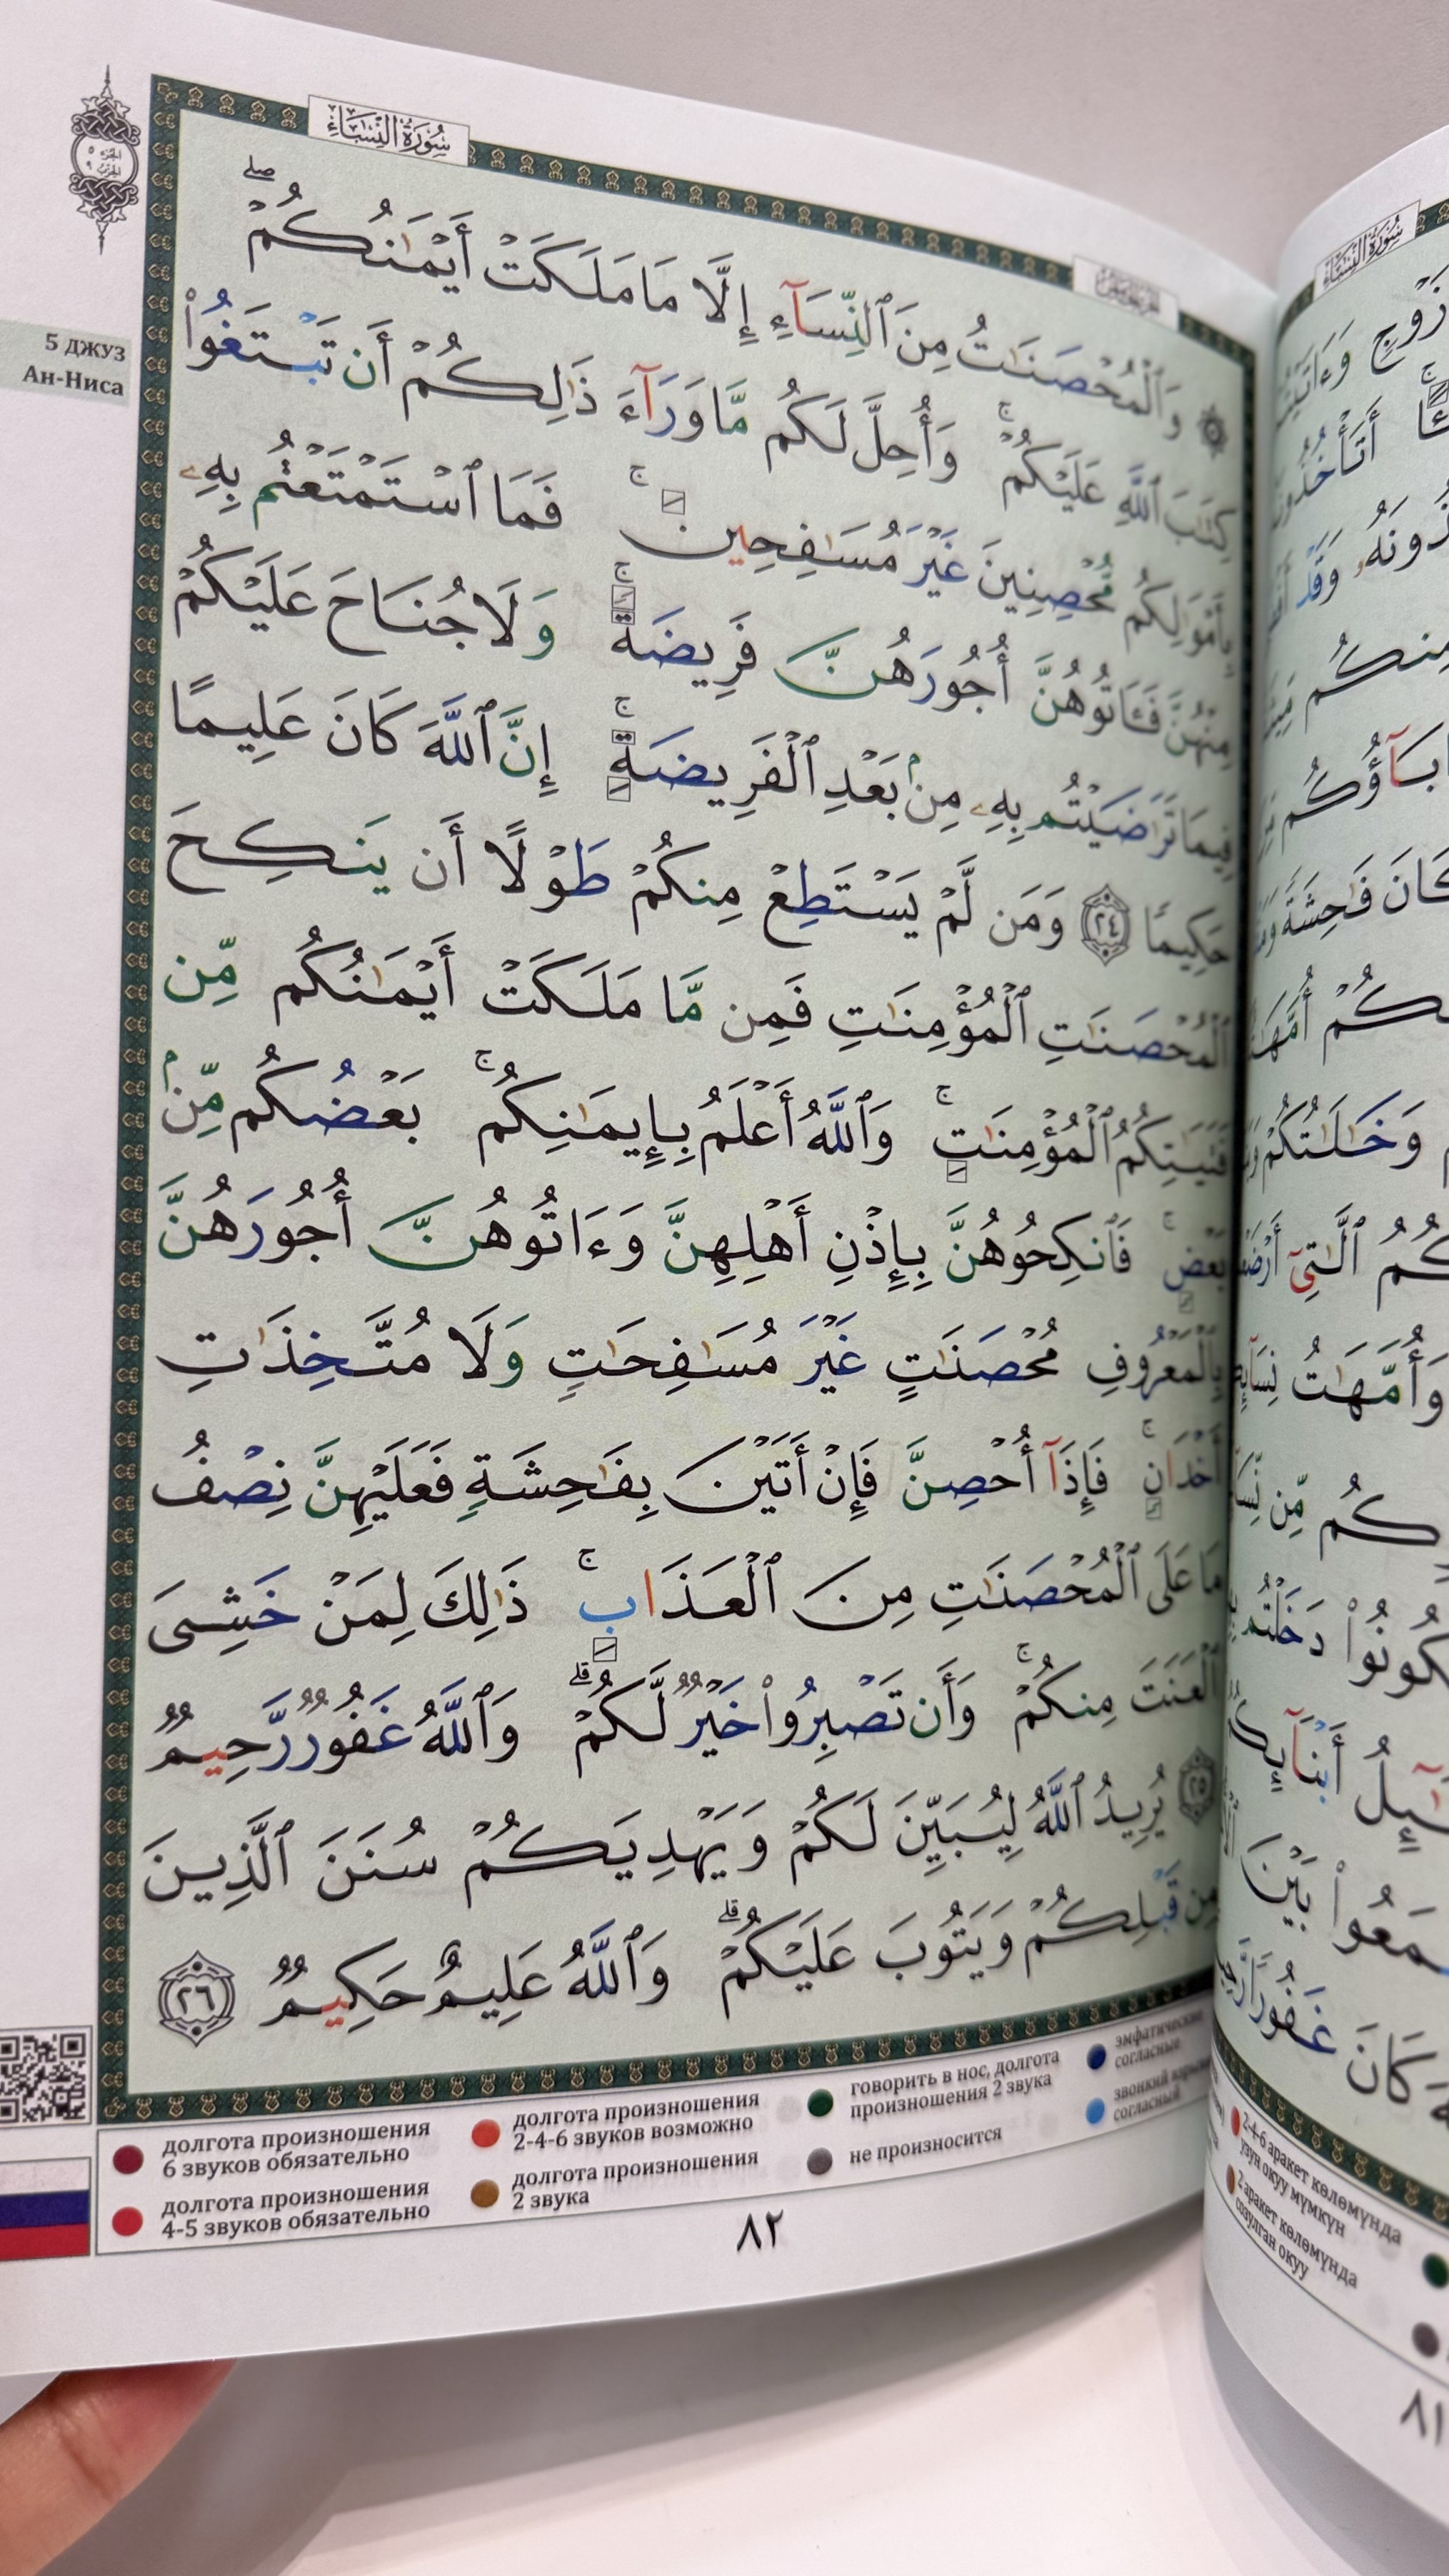 سُورَةُ النِّسَاءِ
الجزء ٥
الحزب ٩
5 ДЖУЗ
Ан-Ниса
۞ وَٱلْمُحْصَنَـٰتُ مِنَ ٱلنِّسَآءِ إِلَّا مَا مَلَكَتْ أَيْمَـٰنُكُمْ ۖ
كِتَـٰبَ ٱللَّهِ عَلَيْكُمْ ۚ وَأُحِلَّ لَكُم مَّا وَرَآءَ ذَٰلِكُمْ أَن تَبْتَغُوا۟
بِأَمْوَٰلِكُم مُّحْصِنِينَ غَيْرَ مُسَـٰفِحِينَ ۚ فَمَا ٱسْتَمْتَعْتُم بِهِۦ
مِنْهُنَّ فَـَٔاتُوهُنَّ أُجُورَهُنَّ فَرِيضَةً ۚ وَلَا جُنَاحَ عَلَيْكُمْ
فِيمَا تَرَٰضَيْتُم بِهِۦ مِنۢ بَعْدِ ٱلْفَرِيضَةِ ۚ إِنَّ ٱللَّهَ كَانَ عَلِيمًا
حَكِيمًا ٢٤ وَمَن لَّمْ يَسْتَطِعْ مِنكُمْ طَوْلًا أَن يَنكِحَ
ٱلْمُحْصَنَـٰتِ ٱلْمُؤْمِنَـٰتِ فَمِن مَّا مَلَكَتْ أَيْمَـٰنُكُم مِّن
فَتَيَـٰتِكُمُ ٱلْمُؤْمِنَـٰتِ ۚ وَٱللَّهُ أَعْلَمُ بِإِيمَـٰنِكُم ۚ بَعْضُكُم مِّنۢ
بَعْضٍ ۚ فَٱنكِحُوهُنَّ بِإِذْنِ أَهْلِهِنَّ وَءَاتُوهُنَّ أُجُورَهُنَّ
بِٱلْمَعْرُوفِ مُحْصَنَـٰتٍ غَيْرَ مُسَـٰفِحَـٰتٍ وَلَا مُتَّخِذَٰتِ
أَخْدَانٍ ۚ فَإِذَآ أُحْصِنَّ فَإِنْ أَتَيْنَ بِفَـٰحِشَةٍ فَعَلَيْهِنَّ نِصْفُ
مَا عَلَى ٱلْمُحْصَنَـٰتِ مِنَ ٱلْعَذَابِ ۚ ذَٰلِكَ لِمَنْ خَشِىَ
ٱلْعَنَتَ مِنكُمْ ۚ وَأَن تَصْبِرُوا۟ خَيْرٌ لَّكُمْ ۗ وَٱللَّهُ غَفُورٌ رَّحِيمٌ
٢٥ يُرِيدُ ٱللَّهُ لِيُبَيِّنَ لَكُمْ وَيَهْدِيَكُمْ سُنَنَ ٱلَّذِينَ
مِن قَبْلِكُمْ وَيَتُوبَ عَلَيْكُمْ ۗ وَٱللَّهُ عَلِيمٌ حَكِيمٌ ٢٦
долгота произношения
6 звуков обязательно
долгота произношения
4-5 звуков обязательно
долгота произношения
2-4-6 звуков возможно
долгота произношения
2 звука
говорить в нос, долгота
произношения 2 звука
не произносится
эмфатические
согласные
звонкий
согласный
٨٢
سُورَةُ النِّسَاءِ
زَوْجٍ
أَتَأْخُذُونَهُۥ
وَقَدْ
مِنكُم
كَانَ فَـٰحِشَةً
وَخَـٰلَـٰتُكُمْ
ٱلَّـٰتِىٓ
وَأُمَّهَـٰتُ
مِّن
دَخَلْتُم
أَبْنَآئِكُمُ
بَيْنَ
كَانَ غَفُورًا
2-4-6 аракет көлөмүндө
узун окуу мүмкүн
2 аракет көлөмүндө
созулган окуу
٨١